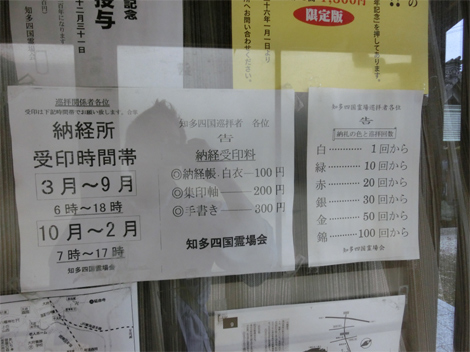 記念
授与
十二月三十一日
知多四国霊場
の
限定版
年記念」を押しております。
十六年一月一日より
へお問い合わせください。
巡拝関係者各位
受印は下記時間帯でお願い致します。
納経所
受印時間帯
3月～9月
6時～18時
10月～2月
7時～17時
知多四国霊場会
知多四国巡拝者 各位
告
納経受印料
◎納経帳・白衣―100円
◎集印軸――200円
◎手書き――300円
知多四国霊場会
知多四国霊場巡拝者各位
告
納札の色と巡拝回数
白………1回から
緑………10回から
赤………20回から
銀………30回から
金………50回から
錦………100回から
知多四国霊場会